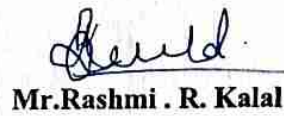 Mr.Rashmi . R. Kalal